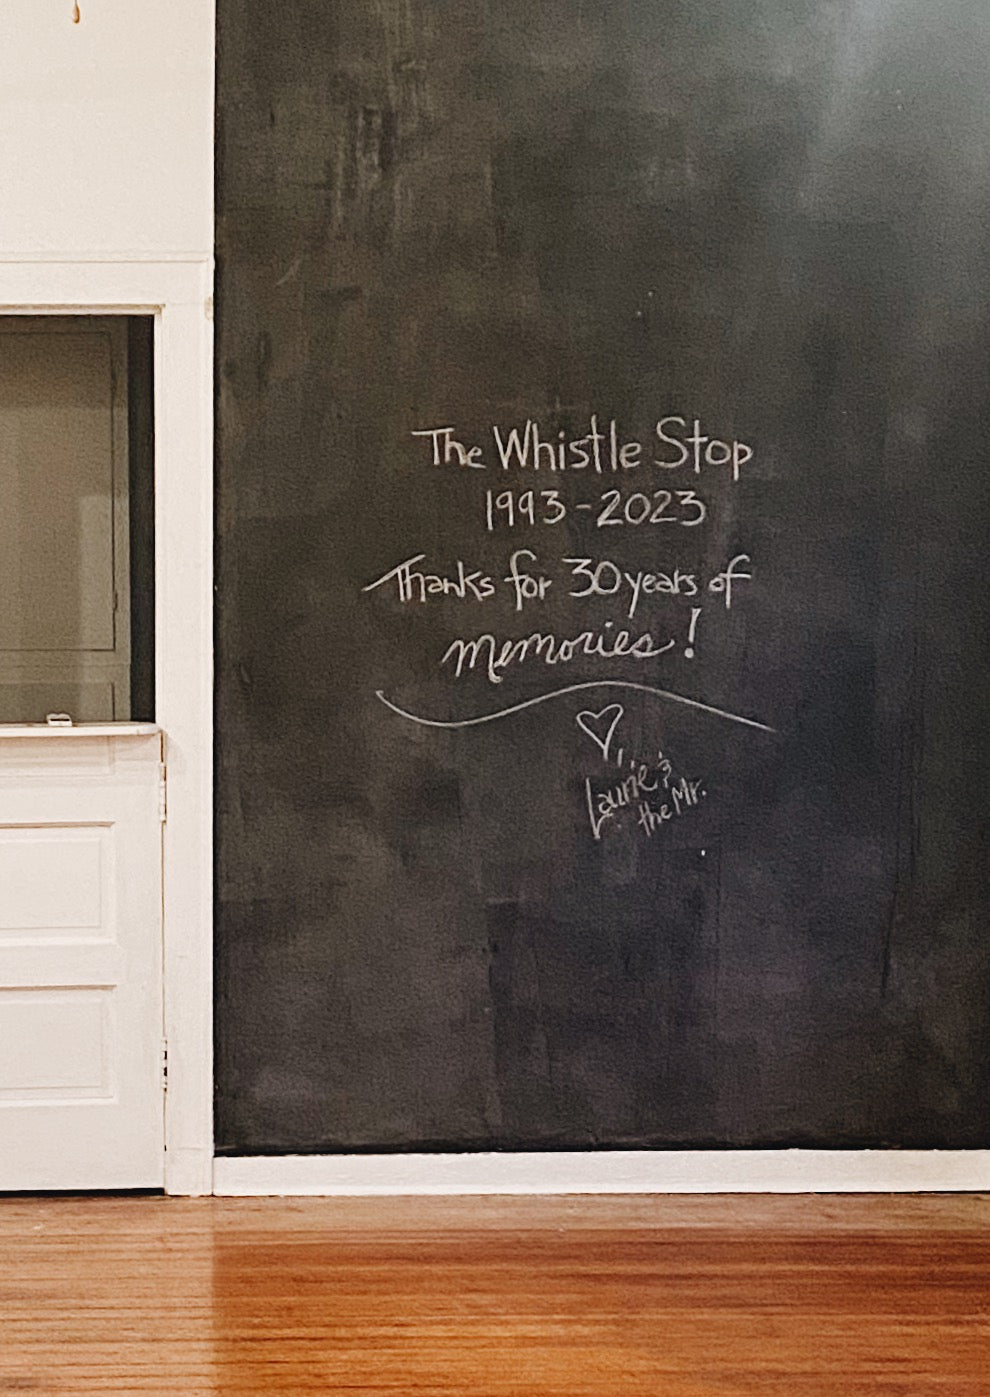 The Whistle Stop
1993-2023
Thanks for 30 years of
memories!
Laurie &
the Mr.